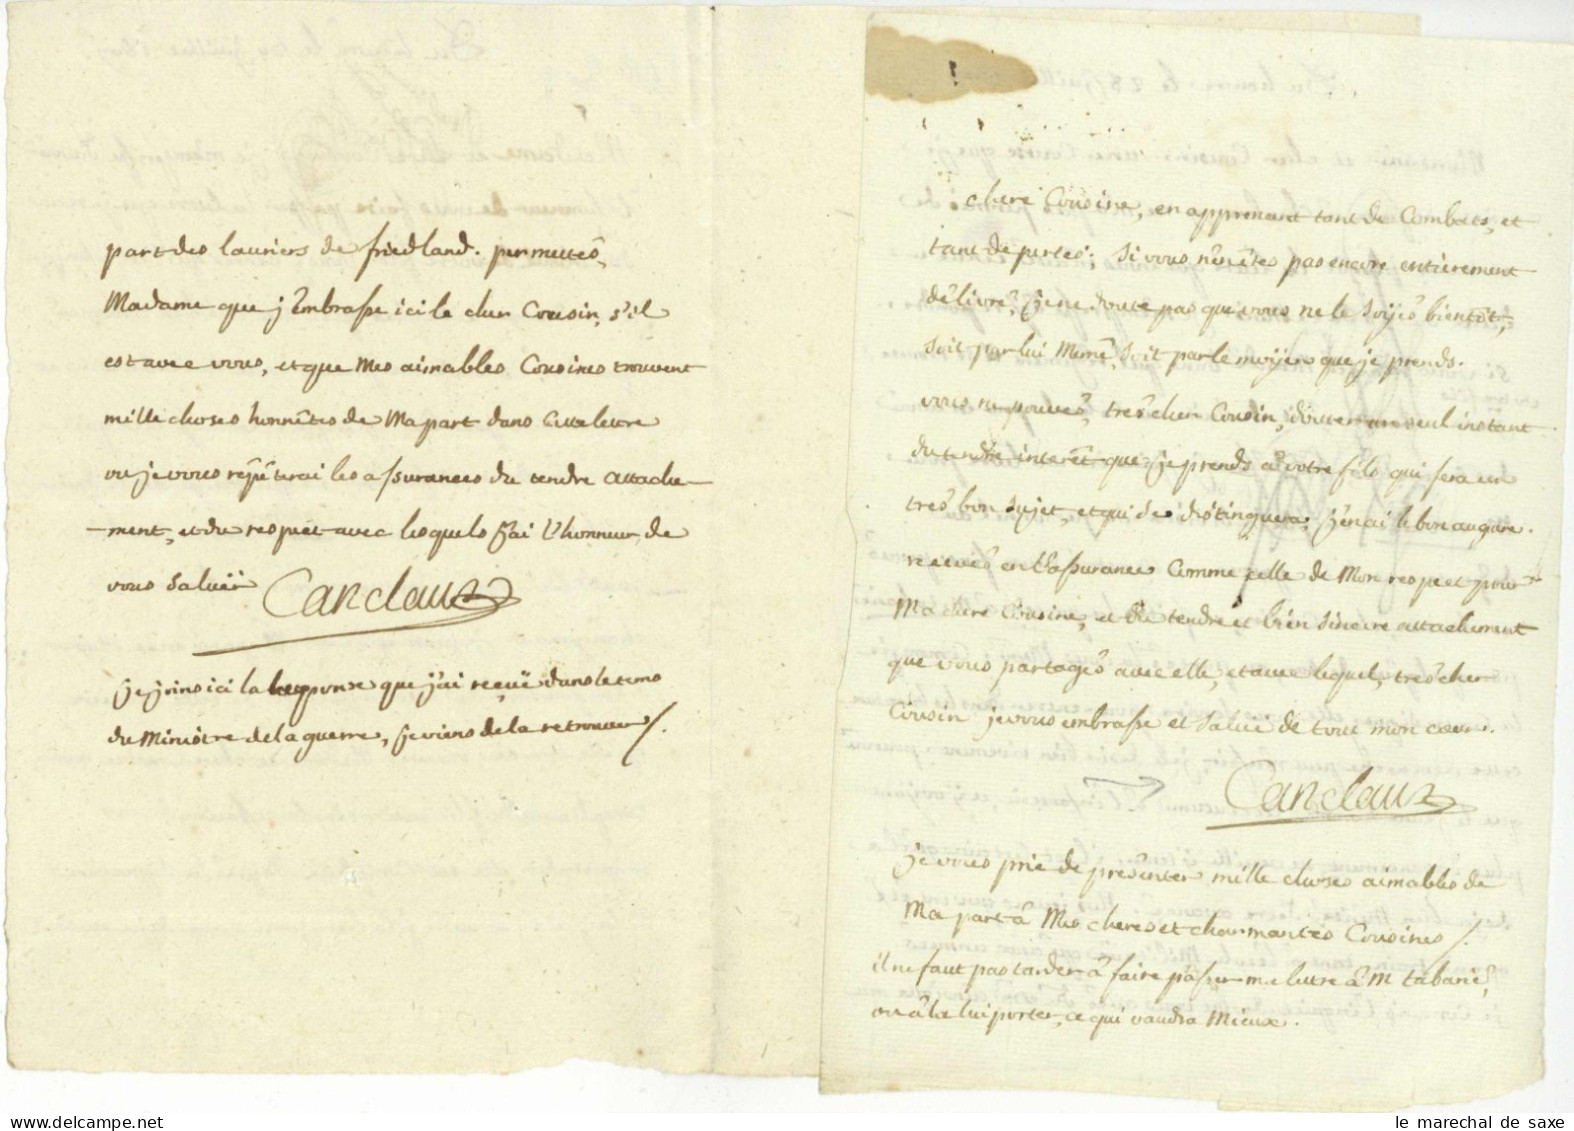 part des lauriers de friedland. permettés,
Madame que j'embrasse ici le cher Cousin, s'il
est avec vous, et que Mes aimables Cousines trouvent
mille choses honnêtes de Ma part dans cette lettre
ou je vous répéterai les assurances du tendre attache-
-ment, et du respect avec lesquels j'ai l'honneur de
vous saluër Canclaux
je joins ici la reponse que j'ai reçuë dans le tems
du Ministre de la guerre, je viens de la retrouver /.
chere Cousine, en apprenant tant de Combats, et
tant de pertes; si vous n'en êtes pas encore entièrement
délivré, je ne doute pas que vous ne le soijés bientôt,
soit par lui Même, soit par le moijen que je prends.
vous ne pouvés, trés cher Cousin, douter un seul instant
du tendre interêt que je prends à votre fils qui sera un
trés bon sujet, et qui se distinguera, j'en ai le bon augure.
recevés en l'assurance Comme celle de Mon respect pour
Ma chere Cousine, et du tendre et bien sincere attachement
que vous partagés avec elle, et avec lequel, trés cher
Cousin je vous embrasse et saluë de tout mon cœur.
Canclaux
je vous prie de présenter mille choses aimables de
Ma part à Mes cheres et charmantes Cousines /.
il ne faut pas tarder à faire passer ma lettre à M tabarié,
ou à la lui porter, ce qui vaudra Mieux.
delcampe.net
le marechal de saxe